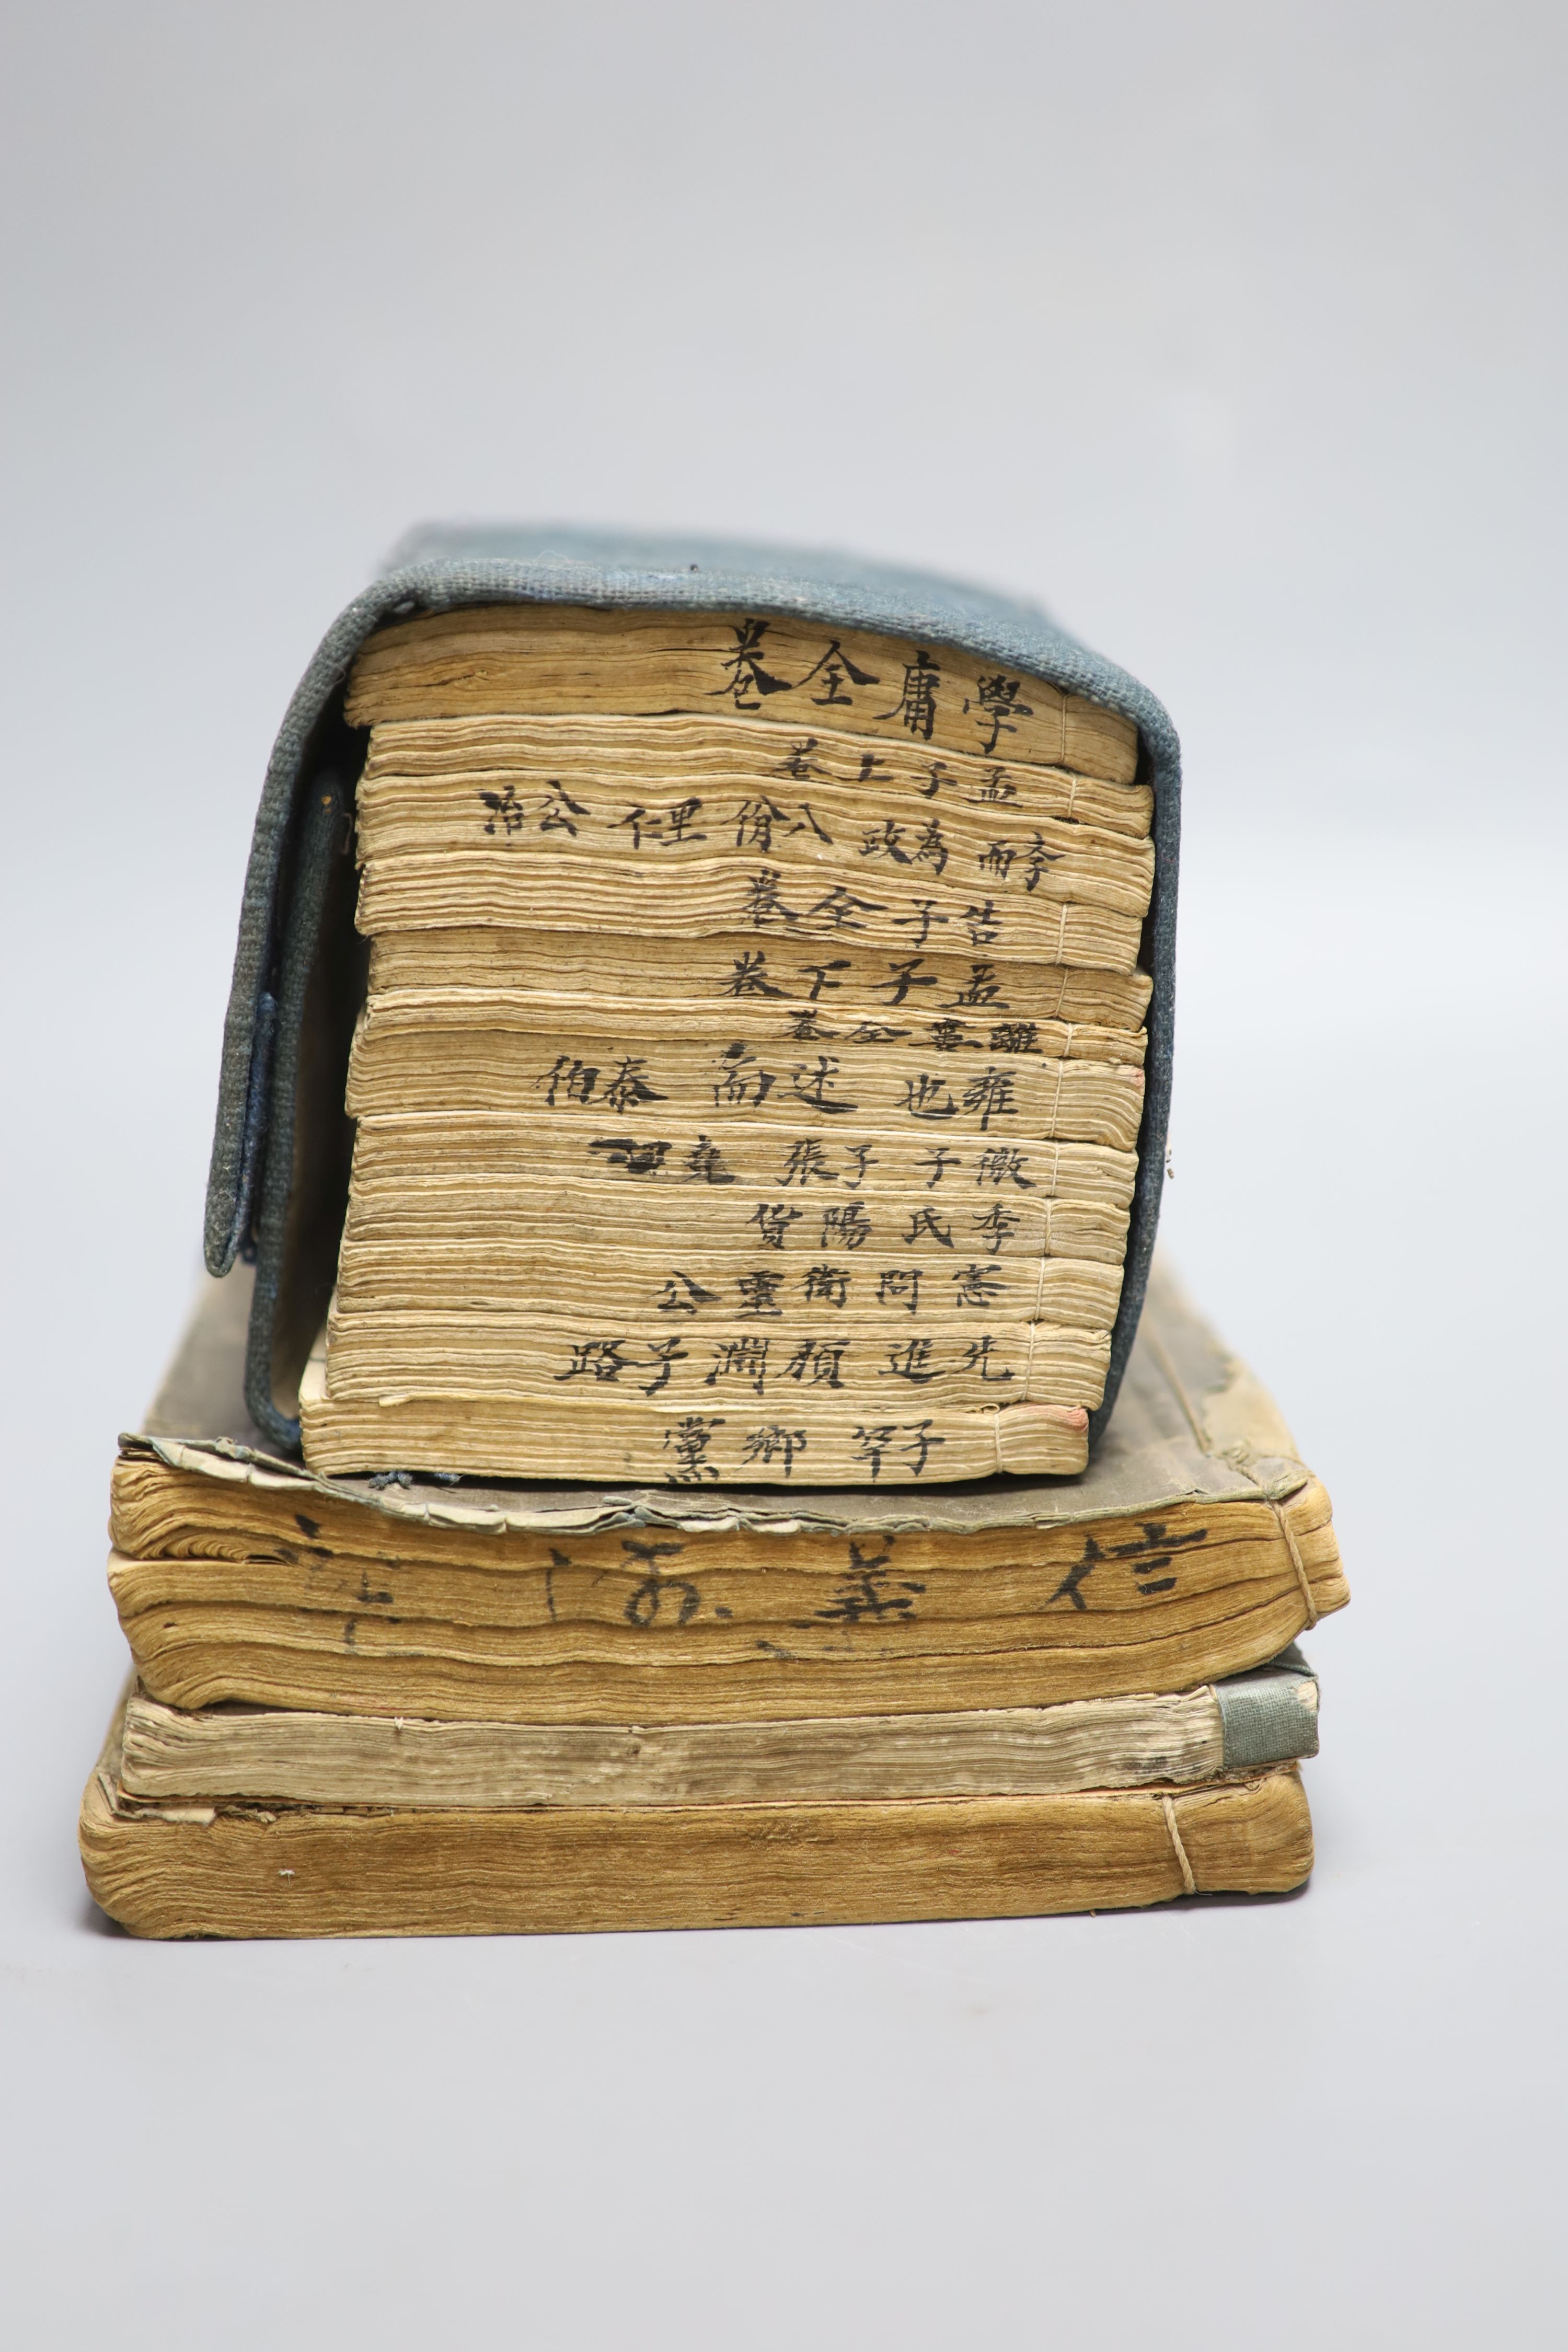 學庸全卷
孟子上卷
學而 為政 八佾 里仁 公冶
告子全卷
孟子下卷
離婁全卷
雍也 述而 泰伯
微子 子張 堯
季氏 陽貨
憲問 衛靈公
先進 顏淵 子路
子罕 鄉黨
信義